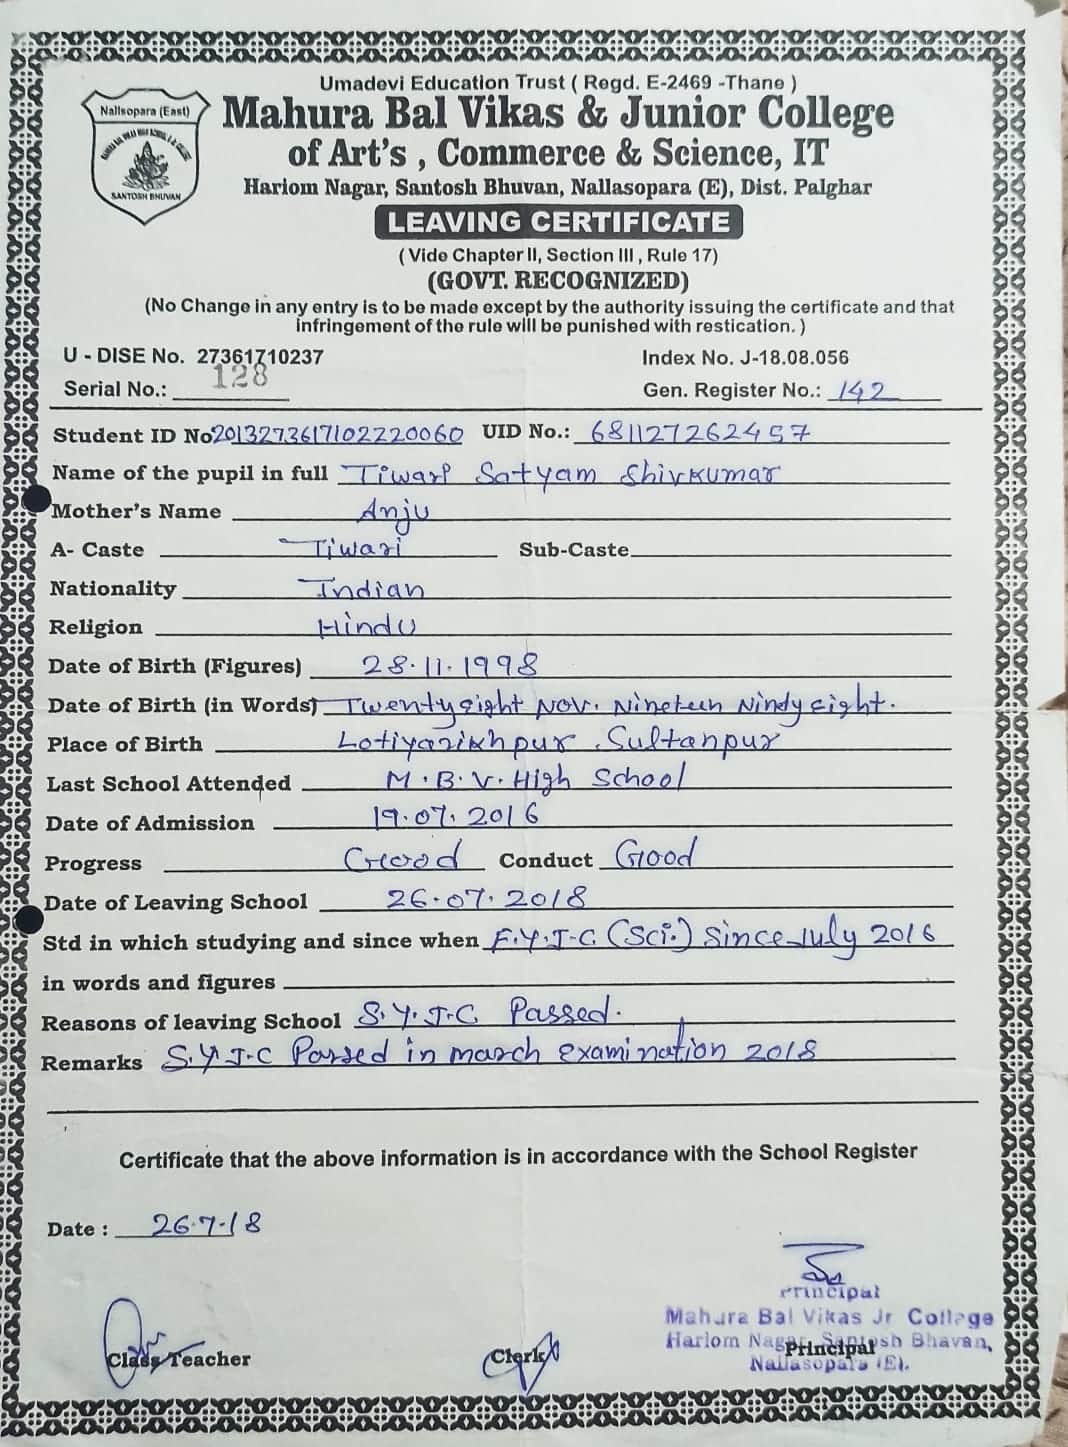 Umadevi Education Trust ( Regd. E-2469 -Thane )
Nallsopara (East)
SANTOSH BHUVAN
Mahura Bal Vikas & Junior College
of Art's , Commerce & Science, IT
Hariom Nagar, Santosh Bhuvan, Nallasopara (E), Dist. Palghar
LEAVING CERTIFICATE
( Vide Chapter II, Section III , Rule 17)
(GOVT. RECOGNIZED)
(No Change in any entry is to be made except by the authority issuing the certificate and that
infringement of the rule will be punished with restication. )
U - DISE No. 27361710237 Index No. J-18.08.056
Serial No.: 128 Gen. Register No.: 142
Student ID No 2013273617102220060 UID No.: 681127262457
Name of the pupil in full Tiwari Satyam Shivkumar
Mother's Name Anju
A- Caste Tiwari Sub-Caste
Nationality Indian
Religion Hindu
Date of Birth (Figures) 28.11.1998
Date of Birth (in Words) Twenty eight Nov. Nineteen Nindy eight.
Place of Birth Sultanpur
Last School Attended M.B.V. High School
Date of Admission 19.07.2016
Progress Good Conduct Good
Date of Leaving School 26.07.2018
Std in which studying and since when F.Y.J.C. (Sci.) Since July 2016
in words and figures
Reasons of leaving School S.Y.J.C. Passed.
Remarks S.Y.J.C Passed in march examination 2018
Certificate that the above information is in accordance with the School Register
Date : 26.7.18
Principal
Mahura Bal Vikas Jr College
Hariom Nagar, Santosh Bhavan,
Nallasopara (E).
Class Teacher Clerk Principal